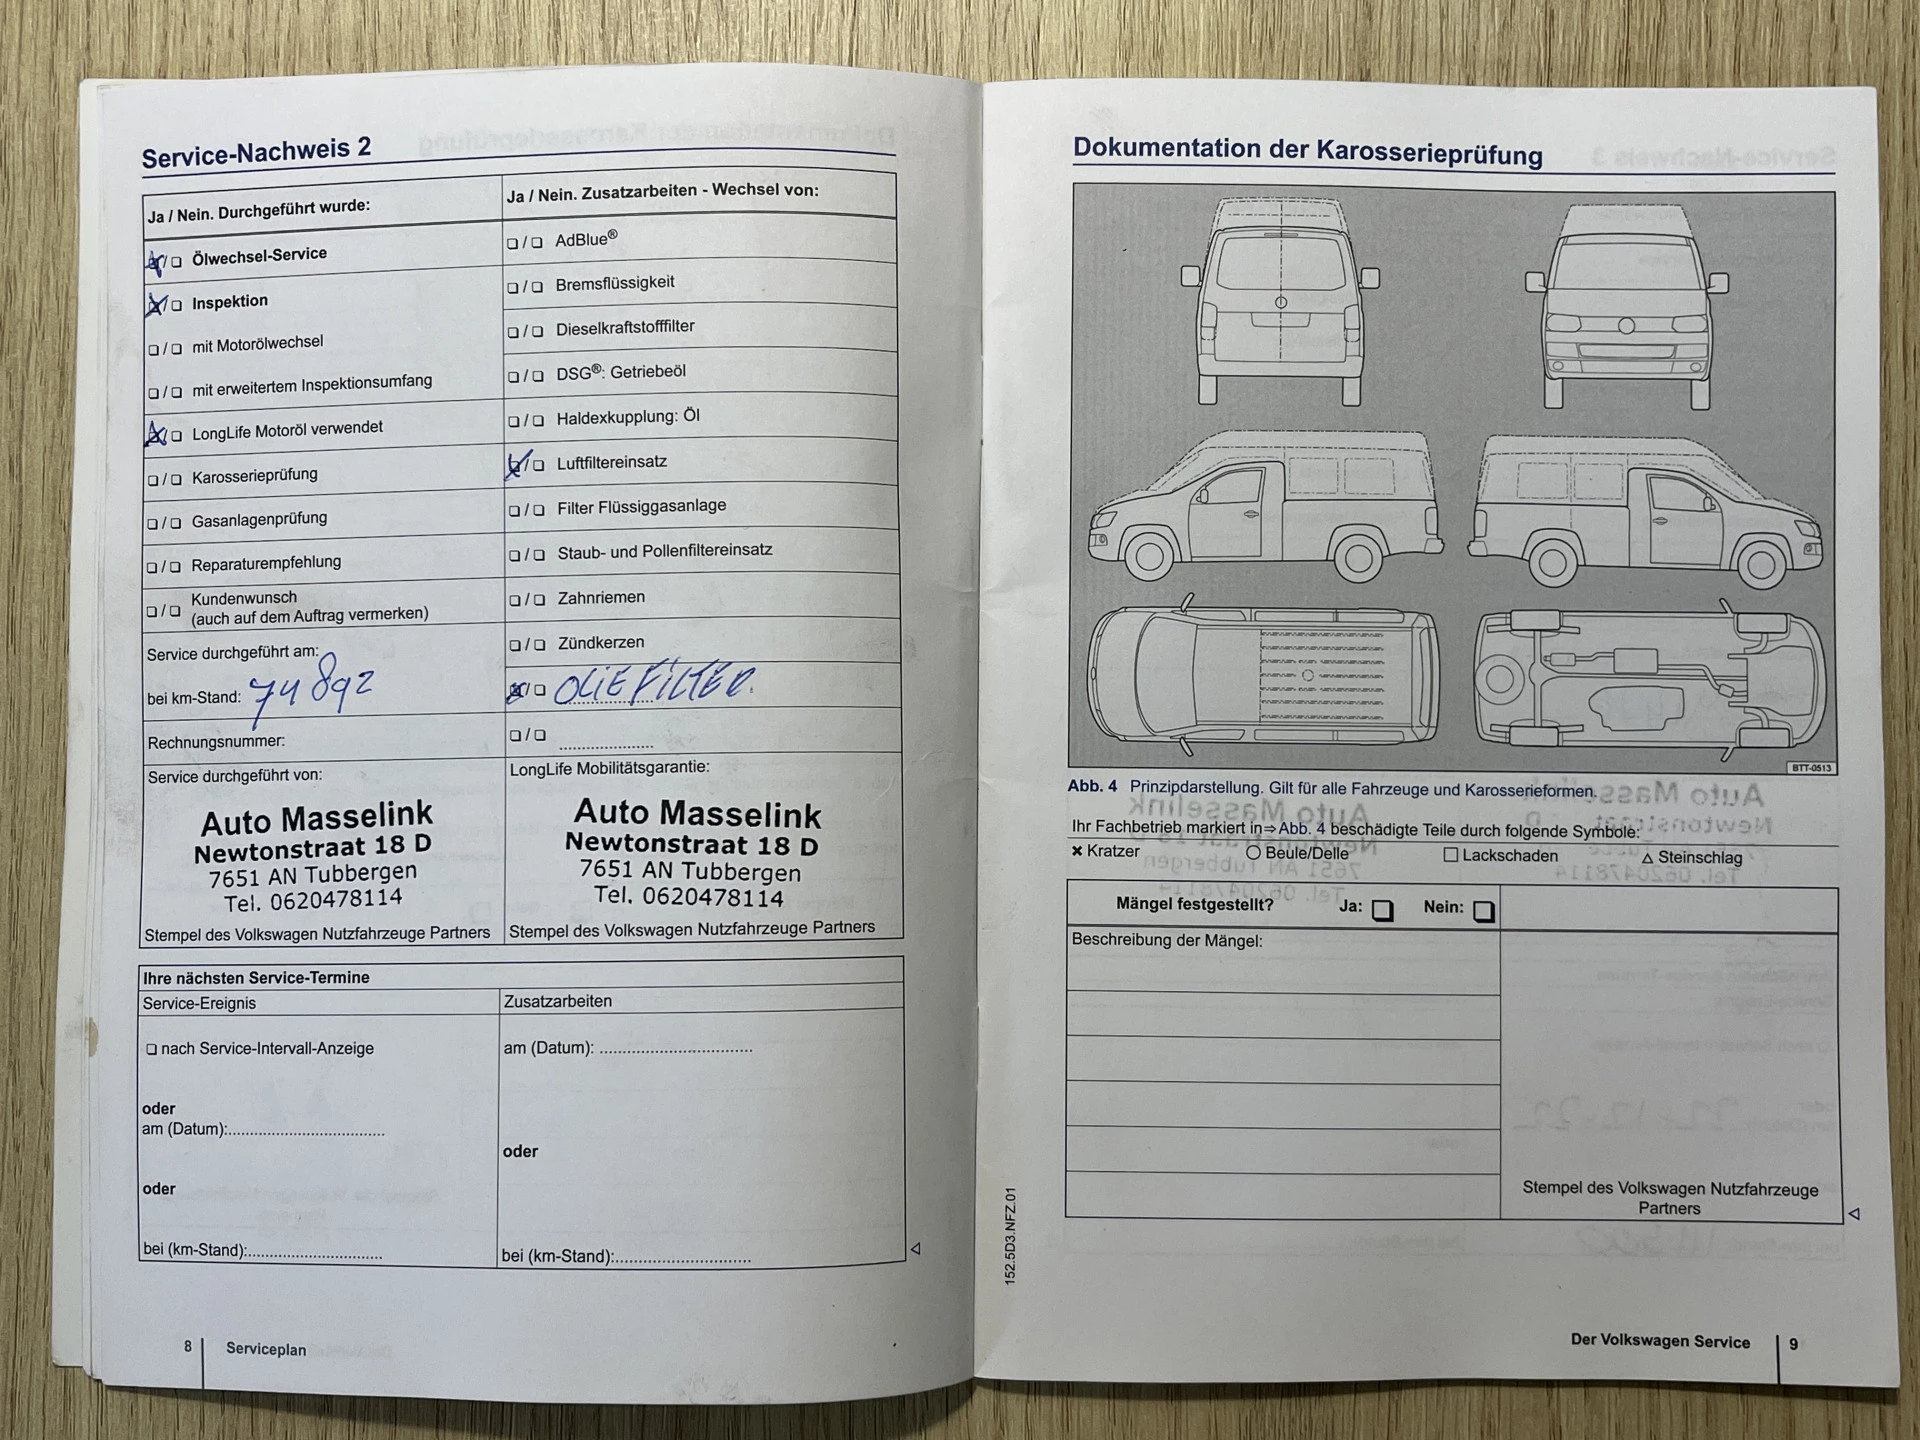 Service-Nachweis 2
Ja / Nein. Durchgeführt wurde:
Ölwechsel-Service
Inspektion
mit Motorölwechsel
mit erweitertem Inspektionsumfang
LongLife Motoröl verwendet
Karosserieprüfung
Gasanlagenprüfung
Reparaturempfehlung
Kundenwunsch
(auch auf dem Auftrag vermerken)
Service durchgeführt am:
bei km-Stand: 74892
Rechnungsnummer:
Service durchgeführt von:
Auto Masselink
Newtonstraat 18 D
7651 AN Tubbergen
Tel. 0620478114
Stempel des Volkswagen Nutzfahrzeuge Partners
Ja / Nein. Zusatzarbeiten - Wechsel von:
AdBlue®
Bremsflüssigkeit
Dieselkraftstofffilter
DSG®: Getriebeöl
Haldexkupplung: Öl
Luftfiltereinsatz
Filter Flüssiggasanlage
Staub- und Pollenfiltereinsatz
Zahnriemen
Zündkerzen
OLIEFILTER.
LongLife Mobilitätsgarantie:
Auto Masselink
Newtonstraat 18 D
7651 AN Tubbergen
Tel. 0620478114
Stempel des Volkswagen Nutzfahrzeuge Partners
Ihre nächsten Service-Termine
Service-Ereignis
nach Service-Intervall-Anzeige
oder
am (Datum):
oder
bei (km-Stand):
Zusatzarbeiten
am (Datum):
oder
bei (km-Stand):
8 Serviceplan
Dokumentation der Karosserieprüfung
BTT-0513
Abb. 4 Prinzipdarstellung. Gilt für alle Fahrzeuge und Karosserieformen.
Ihr Fachbetrieb markiert in⇒Abb. 4 beschädigte Teile durch folgende Symbole:
× Kratzer ○ Beule/Delle □ Lackschaden △ Steinschlag
Mängel festgestellt? Ja: Nein:
Beschreibung der Mängel:
Stempel des Volkswagen Nutzfahrzeuge
Partners
152.5D3.NFZ.01
Der Volkswagen Service 9